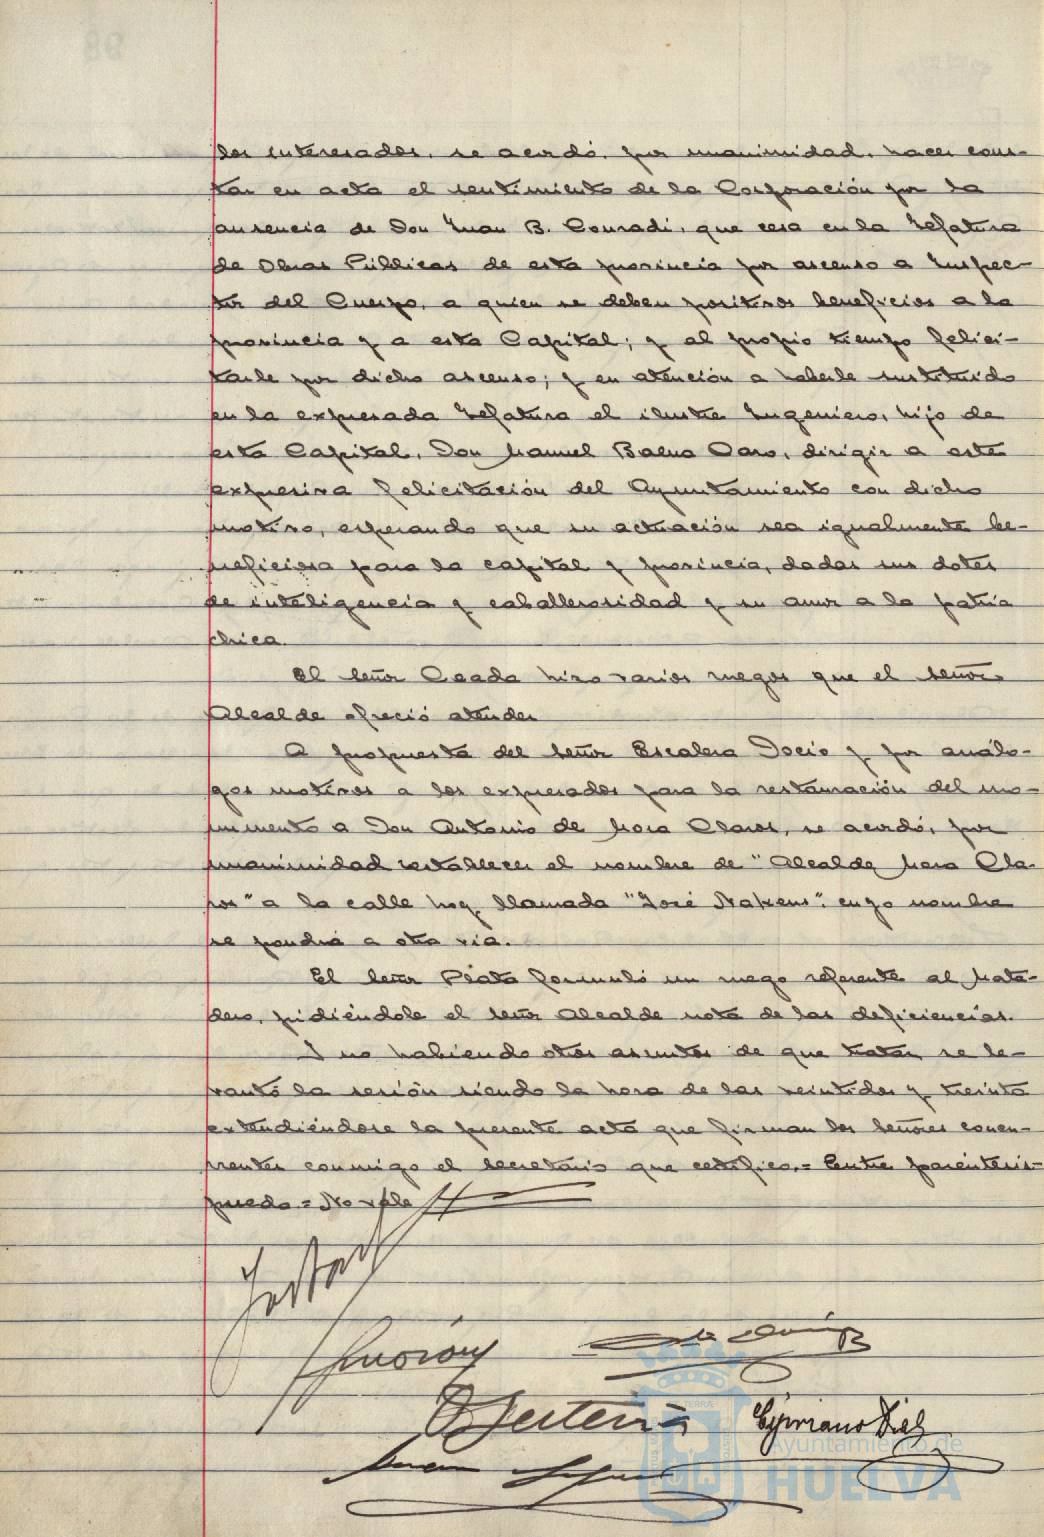 los interesados, se acordó, por unanimidad, hacer cons-
tar en acta el sentimiento de la Corporación por la
ausencia de Don Juan B. Conradi, que cesa en la Jefatura
de Obras Públicas de esta provincia por ascenso a Inspec-
tor del Cuerpo, a quien se deben positivos beneficios a la
provincia y a esta Capital; y al propio tiempo felici-
tarle por dicho ascenso; y en atención a haberle sustituido
en la expresada Jefatura el ilustre Ingeniero, hijo de
esta Capital, Don Manuel Baena Caro, dirigir a este
expresiva felicitación del Ayuntamiento con dicho
motivo, esperando que su actuación sea igualmente be-
neficiosa para la capital y provincia, dadas sus dotes
de inteligencia y caballerosidad y su amor a la patria
chica.
El Señor Ceada hizo varios ruegos que el Señor
Alcalde ofreció atender
A propuesta del Señor Escalera Docio y por análo-
gos motivos a los expresados para la restauración del mo-
numento a Don Antonio de Mora Claros, se acordó, por
unanimidad restablecer el nombre de "Alcalde Mora Cla-
ros" a la calle hoy llamada "José Nakens", cuyo nombre
se pondrá a otra vía.
El Señor Plata formuló un ruego referente al Mata-
dero, pidiéndole el Señor Alcalde nota de las deficiencias.
Y no habiendo otros asuntos de que tratar, se le-
vantó la sesión siendo la hora de las veintidos y treinta
extendiéndose la presente acta que firman los Señores concu-
rrentes conmigo el Secretario que certifico.= Entre paréntesis-
puedo = No vale
Cipriano Diaz
TERRA
Ayuntamiento de
HUELVA